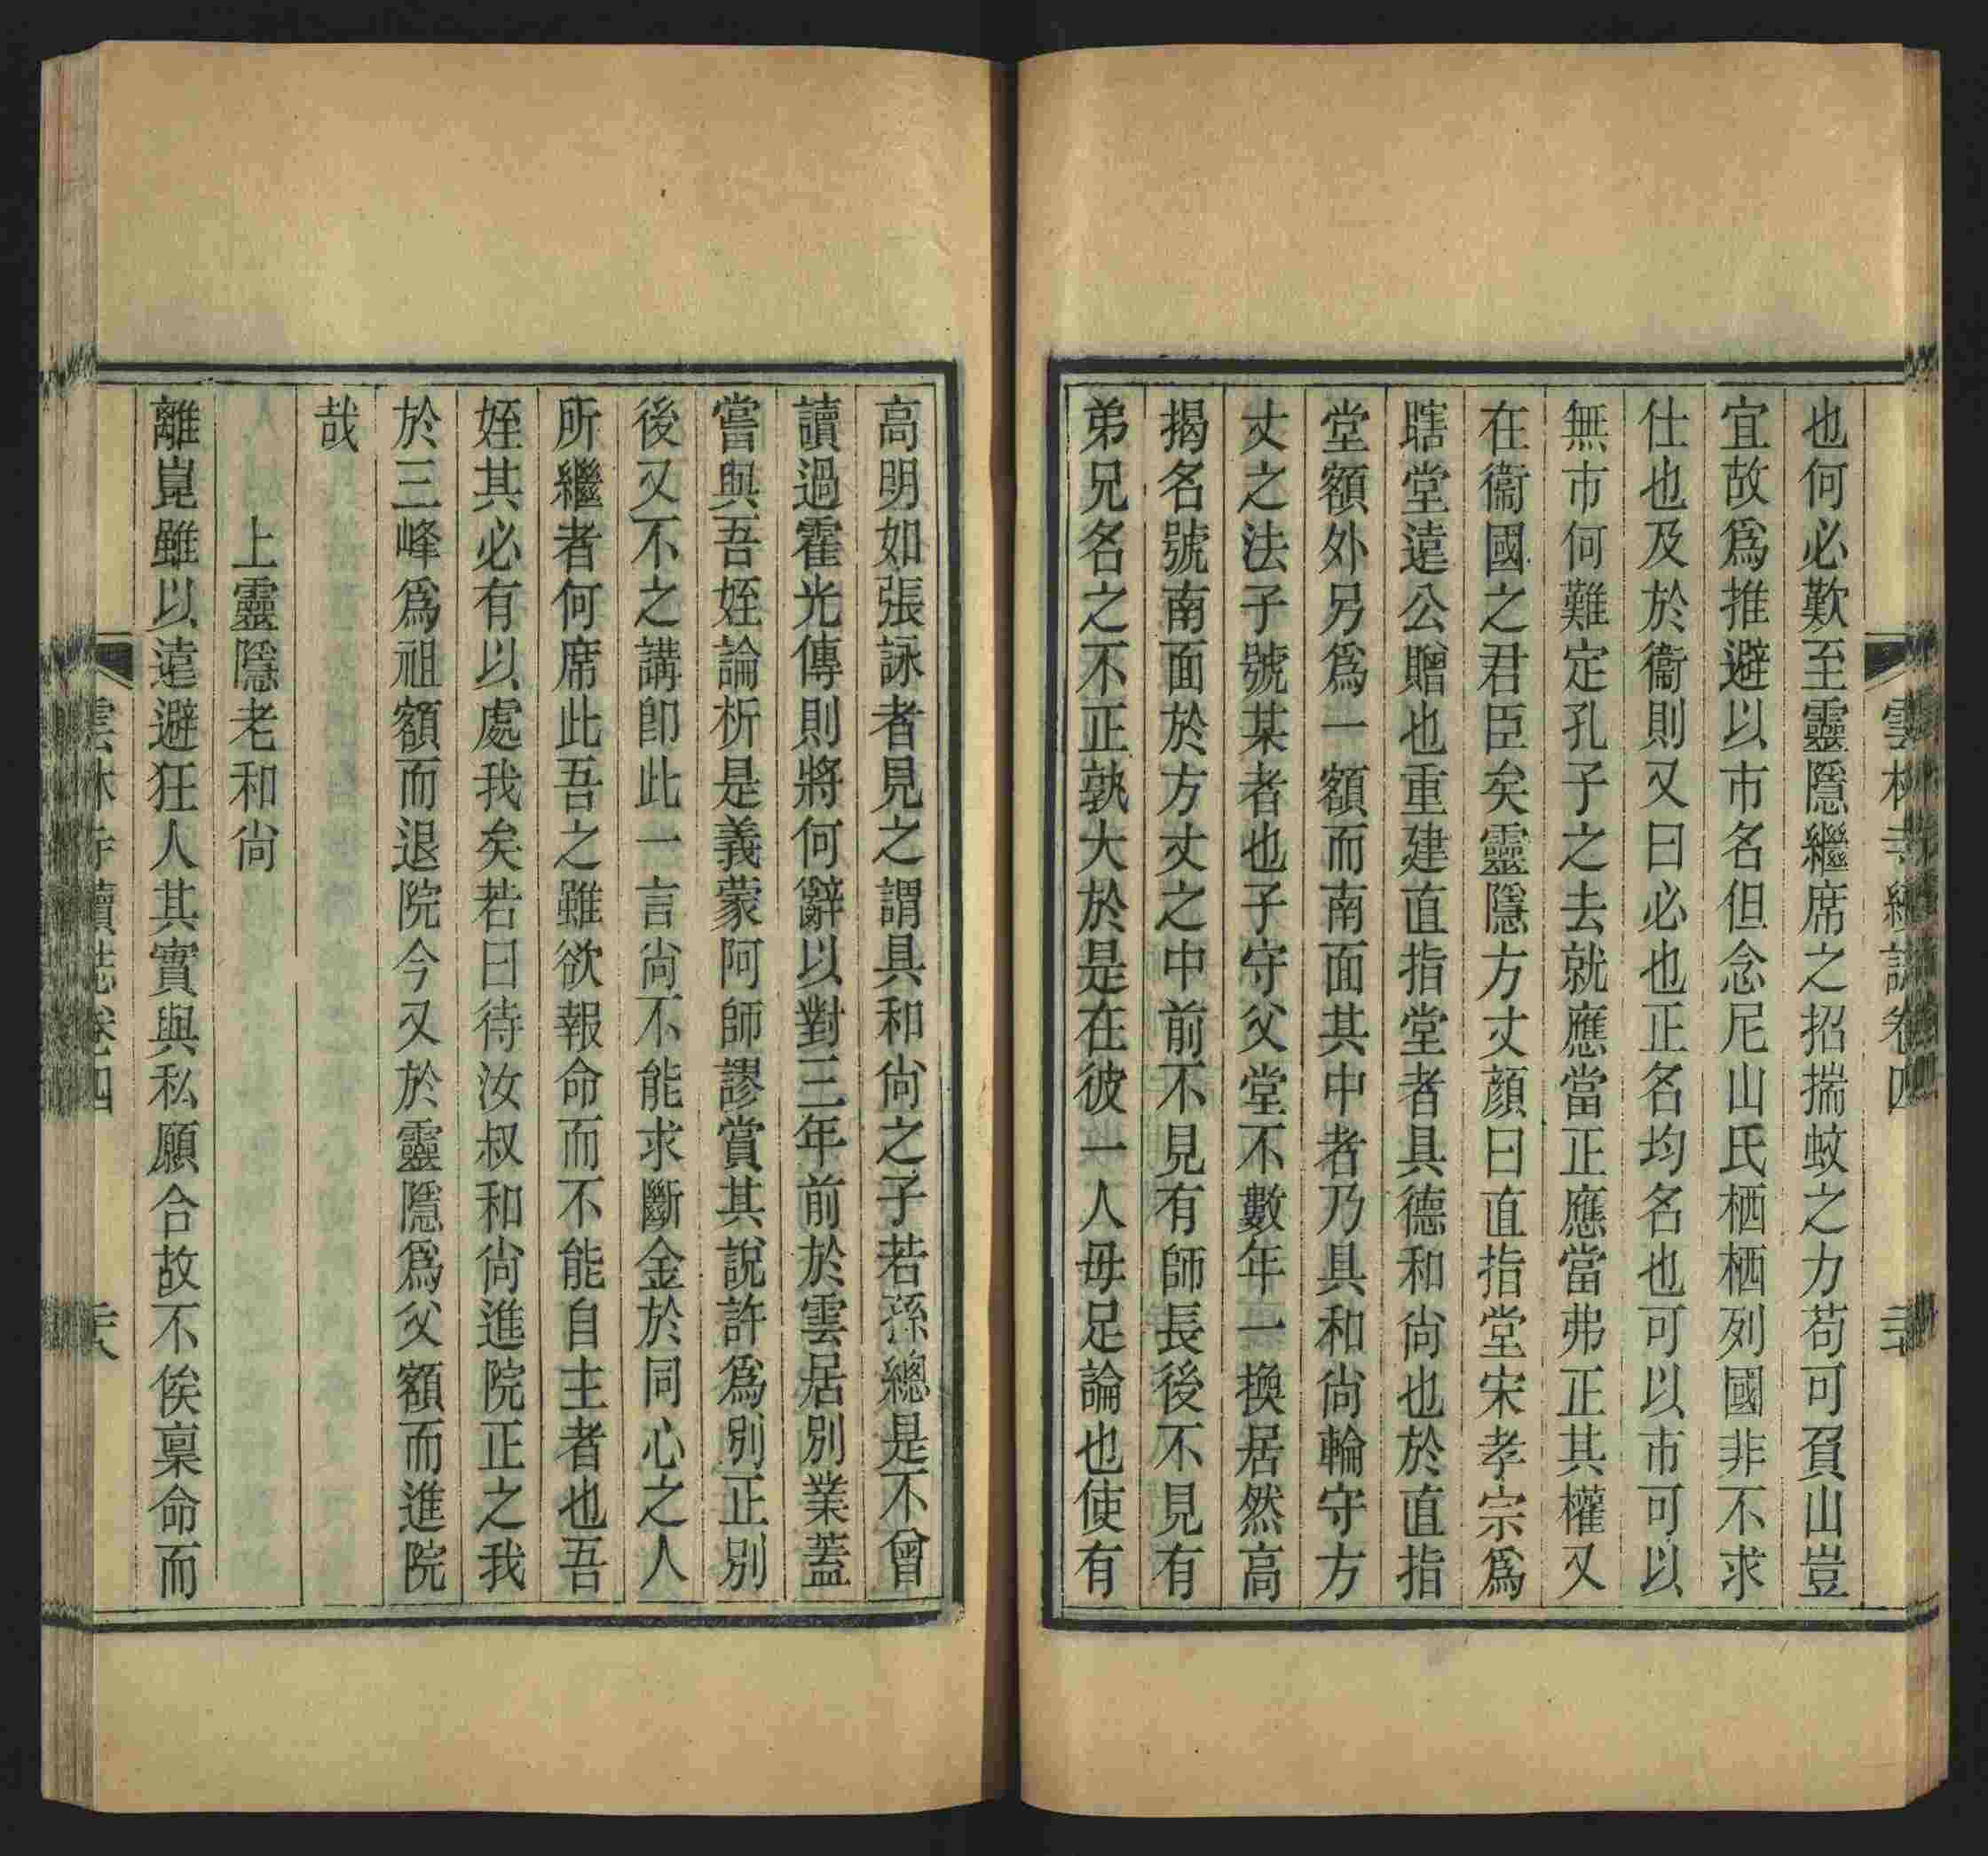 雲林寺續誌卷四
也何必歎至靈隱繼席之招揣蚊之力苟可負山豈
宜故爲推避以市名但念尼山氏栖栖列國非不求
仕也及於衞則又曰必也正名均名也可以市可以
無市何難定孔子之去就應當正應當弗正其權又
在衞國之君臣矣靈隱方丈顏曰直指堂宋孝宗爲
瞎堂遠公贈也重建直指堂者具德和尙也於直指
堂額外另爲一額而南面其中者乃具和尙輪守方
丈之法子號某者也子守父堂不數年一換居然高
揭名號南面於方丈之中前不見有師長後不見有
弟兄名之不正孰大於是在彼一人毋足論也使有
高明如張詠者見之謂具和尙之子若孫總是不曾
讀過霍光傳則將何辭以對三年前於雲居別業蓋
嘗與吾姪論析是義蒙阿師謬賞其說許爲別正別
後又不之講卽此一言尙不能求斷金於同心之人
所繼者何席此吾之雖欲報命而不能自主者也吾
姪其必有以處我矣若曰待汝叔和尙進院正之我
於三峰爲祖額而退院今又於靈隱爲父額而進院
哉
上靈隱老和尙
離崑雖以遠避狂人其實與私願合故不俟稟命而
雲林寺續誌卷四